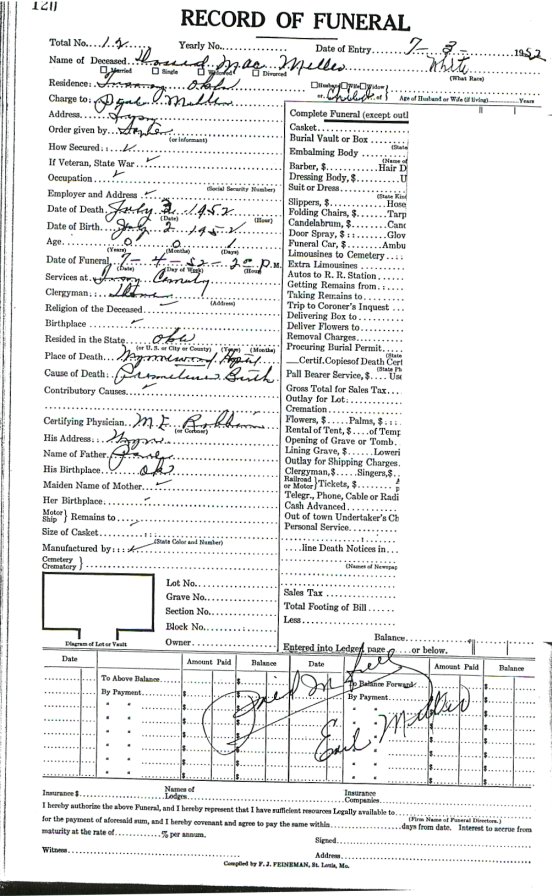 120
RECORD OF FUNERAL
Total No. 12 Yearly No. Date of Entry 7-3- 1952
Name of Deceased Howard Mac Miller White
Married Single Widowed Divorced (What Race)
Residence: Okla Husband Wife Widow
or Child of Age of Husband or Wife (if living) Years
Charge to: Miller
Address
Order given by (or informant)
How Secured
If Veteran, State War
Occupation (Social Security Number)
Employer and Address
Date of Death July 3 1952 (Date) (Hour)
Date of Birth July 2 1952
Age 0 0 1 (Years) (Months) (Days)
Date of Funeral 7-4-52-2:00 P.M. (Date) (Day of Week) (Hour)
Services at
Clergyman (Address)
Religion of the Deceased
Birthplace
Resided in the State Okla (or U. S. or City or County) (Years) (Months)
Place of Death Wynnewood Hospital
Cause of Death: Premature Birth
Contributory Causes
Certifying Physician M E Robberson (or Coroner)
His Address Wynn
Name of Father
His Birthplace Okla
Maiden Name of Mother
Her Birthplace
Motor Ship } Remains to
Size of Casket (State Color and Number)
Manufactured by
Cemetery Crematory }
Complete Funeral (except outl
Casket
Burial Vault or Box (State
Embalming Body (Name of
Barber, $ Hair D
Dressing Body, $ U
Suit or Dress (State Kind
Slippers, $ Hose
Folding Chairs, $ Tarp
Candelabrum, $ Cand
Door Spray, $ Glov
Funeral Car, $ Ambu
Limousines to Cemetery
Extra Limousines
Autos to R. R. Station
Getting Remains from
Taking Remains to
Trip to Coroner's Inquest
Delivering Box to
Deliver Flowers to
Removal Charges
Procuring Burial Permit (State
Certif. Copies of Death Cert (State Ph
Pall Bearer Service, $ Use
Gross Total for Sales Tax
Outlay for Lot
Cremation
Flowers, $ Palms, $
Rental of Tent, $ of Temp
Opening of Grave or Tomb
Lining Grave, $ Loweri
Outlay for Shipping Charges
Clergyman, $ Singers, $
Railroad or Motor } Tickets, $
Telegr., Phone, Cable or Radi
Cash Advanced
Out of town Undertaker's Ch
Personal Service
line Death Notices in
(Names of Newspap
Sales Tax
Total Footing of Bill
Less
Balance
Entered into Ledger, page or below.
Lot No.
Grave No.
Section No.
Block No.
Owner
Diagram of Lot or Vault
Date Amount Paid Balance Date Amount Paid Balance
To Above Balance $ To Balance Forward $
By Payment $ By Payment $
Earl Miller
Insurance $ Names of Lodges Insurance Companies
I hereby authorize the above Funeral, and I hereby represent that I have sufficient resources Legally available to
(Firm Name of Funeral Directors.)
for the payment of aforesaid sum, and I hereby covenant and agree to pay the same within days from date. Interest to accrue from
maturity at the rate of % per annum. Signed
Witness Address
Compiled by F. J. FEINEMAN, St. Louis, Mo.